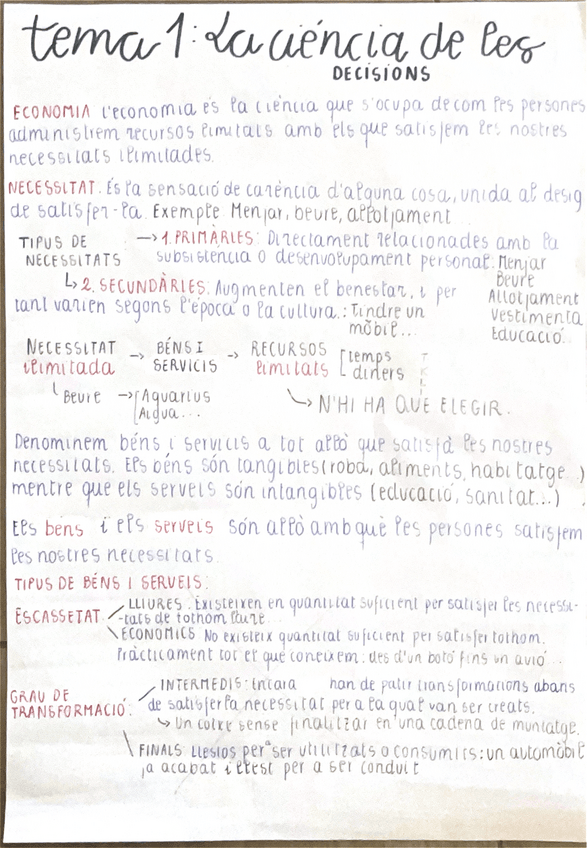 tema 1: La ciéncia de les
DECISIONS
ECONOMIA L'economia és la ciència que s'ocupa de com les persones
administrem recursos limitats amb els que satisfem les nostres
necessitats ilimitades.
NECESSITAT: És la sensació de carència d'alguna cosa, unida al desig
de satisfer-la. Exemple Menjar, beure, allotjament
TIPUS DE NECESSITATS → 1. PRIMÀRIES: Directament relacionades amb la
subsistencia o desenvolupament personal: Menjar
Beure
Allotjament
Vestimenta
Educació..
↳ 2. SECUNDÀRIES: Augmenten el benestar, i per
tant varien segons l'època o la cultura.: Tindre un
mòbil...
NECESSITAT ilimitada → BÉNS I SERVICIS → RECURSOS limitats [temps
diners
Beure → Aquarius
Aigua...
↳ N'HI HA QUE ELEGIR.
Denominem béns i servicis a tot allò que satisfà les nostres
necessitats. Els béns són tangibles (roba, aliments, habitatge..)
mentre que els serveis són intangibles (educació, sanitat...)
Els bens i els serveis són allò amb què les persones satisfem
les nostres necessitats.
TIPUS DE BÉNS I SERVEIS:
ESCASSETAT
LLIURES: Existeixen en quantitat suficient per satisfer les necessi-
-tats de tothom
ECONOMICS No existeix quantitat suficient per satisfer tothom.
Pràcticament tot el que coneixem: des d'un botó fins un avió...
GRAU DE TRANSFORMACIÓ:
INTERMEDIS: Encara han de patir transformacions abans
de satisfer la necessitat per a la qual van ser creats.
↳ Un cotxe sense finalitzar en una cadena de muntatge.
FINALS: Llestos per a ser utilitzats o consumits: un automòbil
ja acabat i llest per a ser conduit